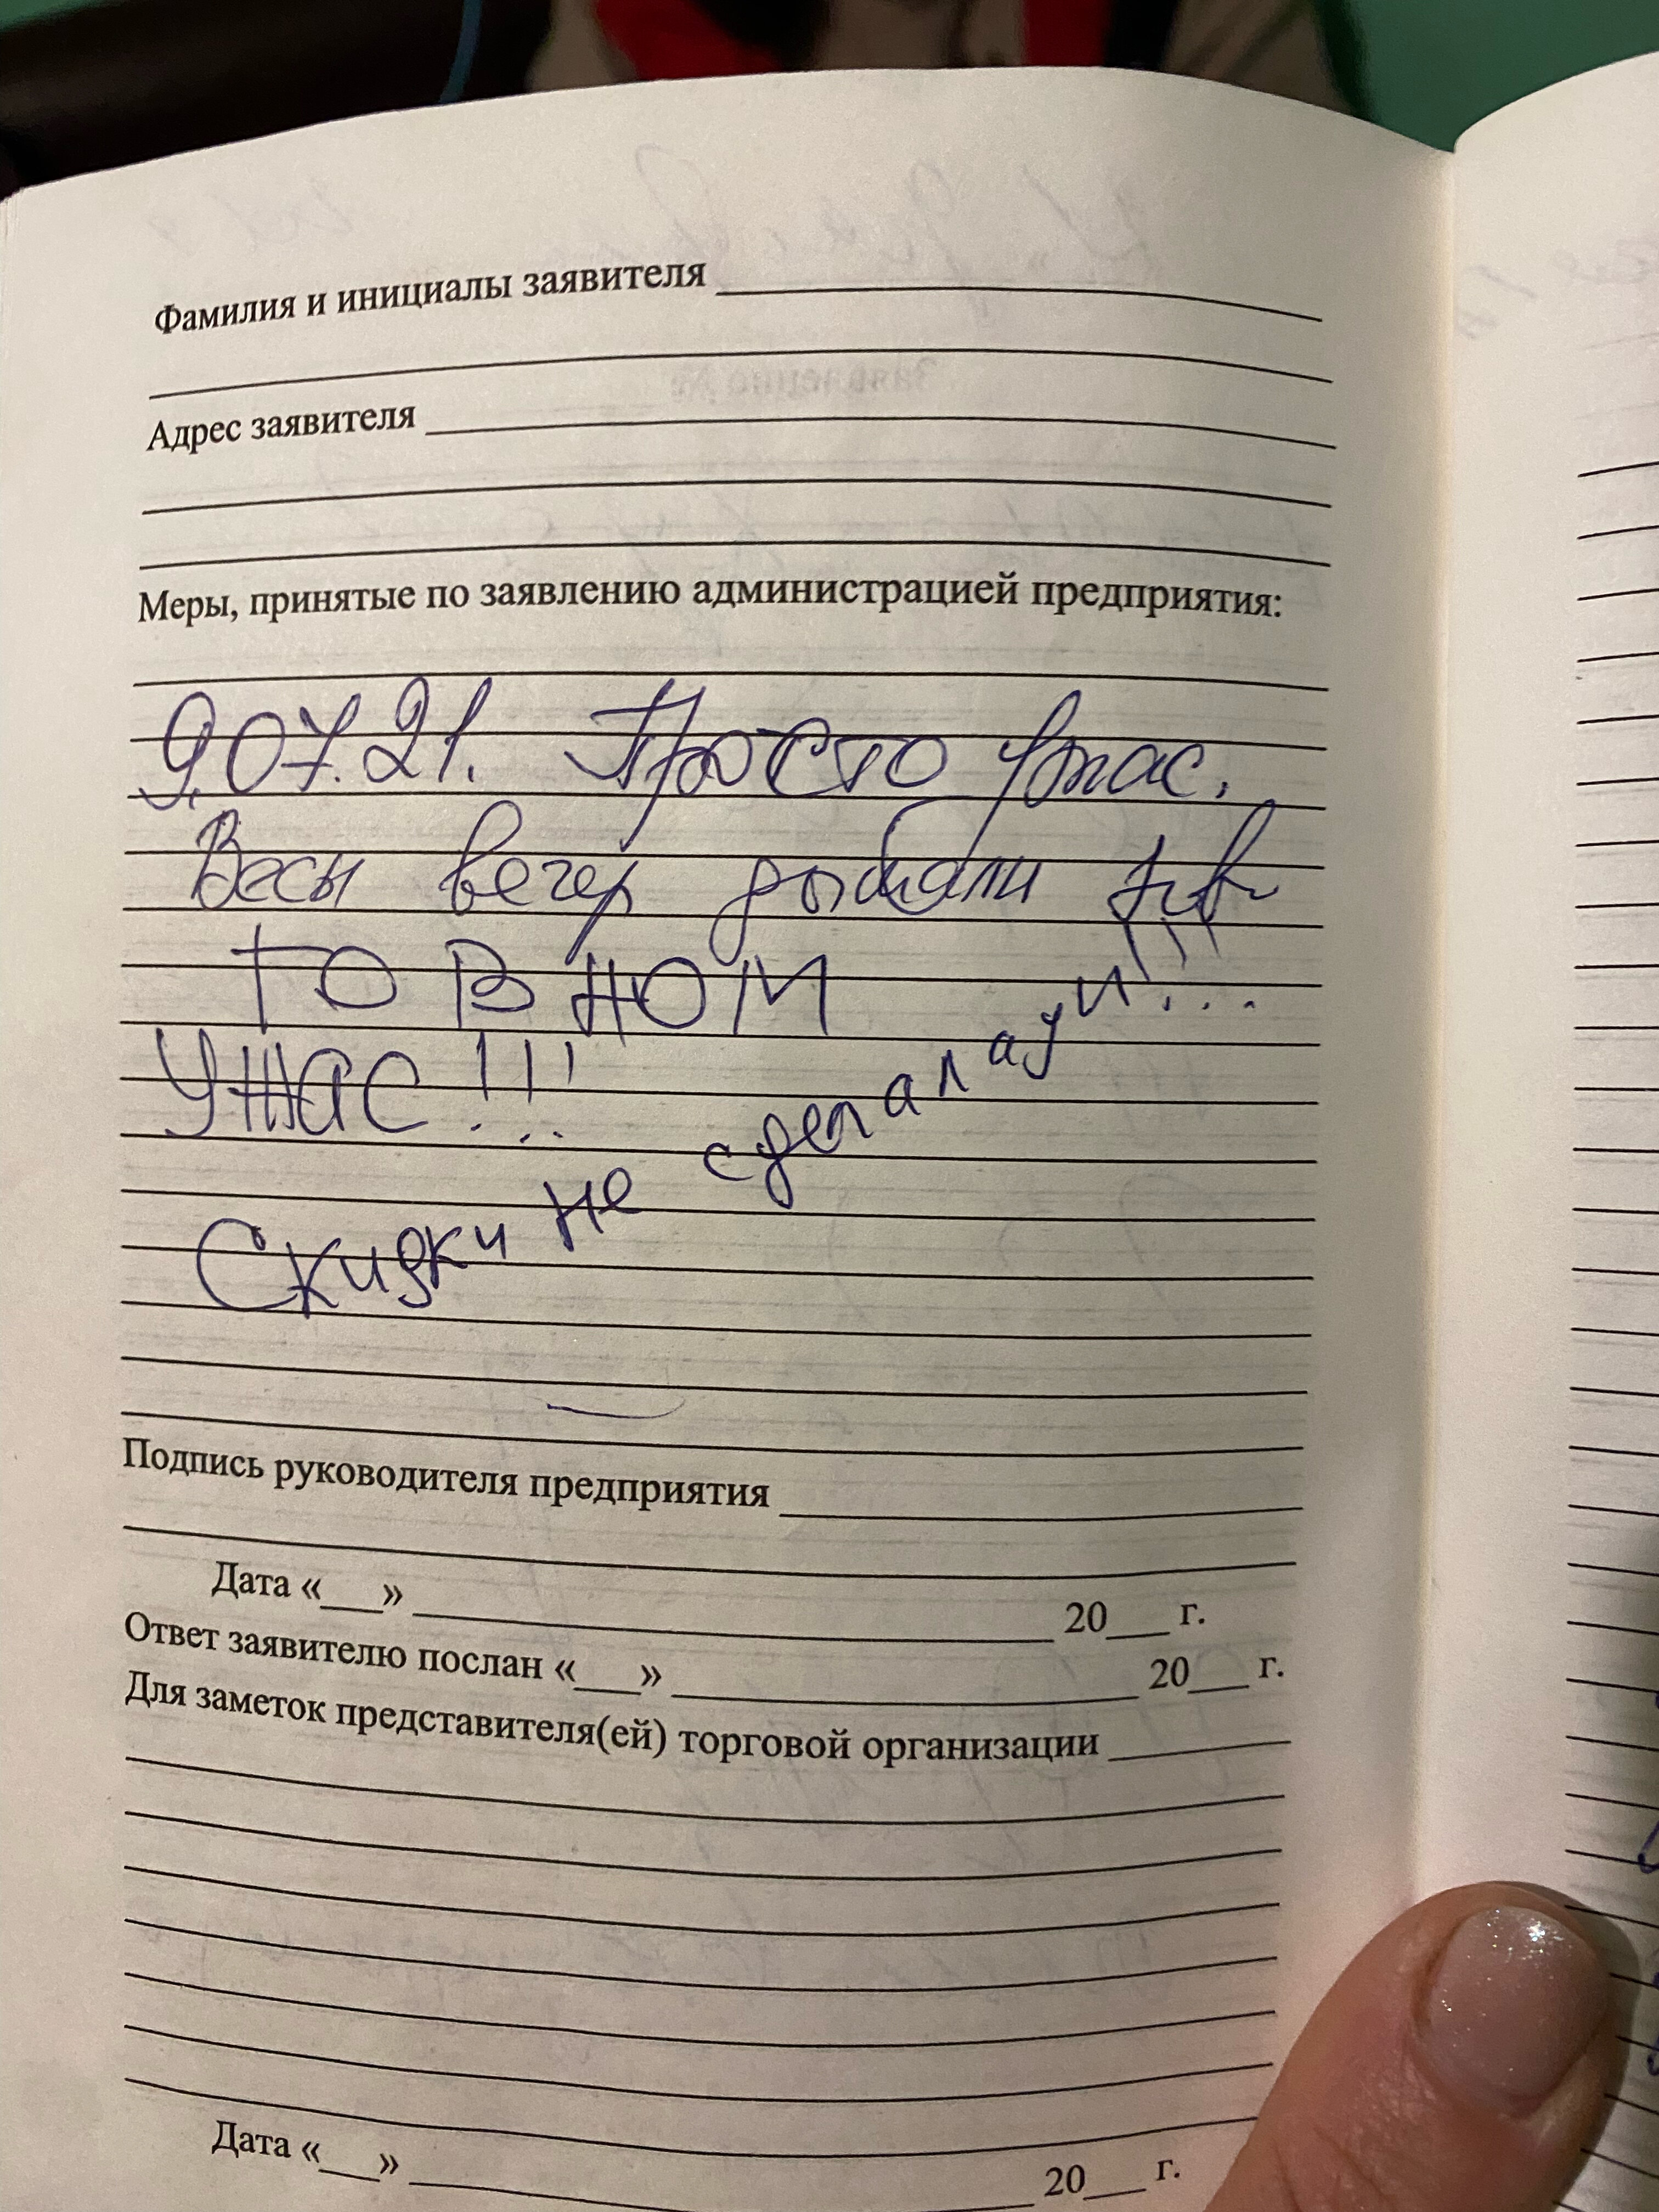 Фамилия и инициалы заявителя
Адрес заявителя
Меры, принятые по заявлению администрацией предприятия:
9.07.21. Просто ужас.
Весь вечер дышали
ГОВНОМ
УЖАС!!!
Скидки не сделалаул!!!
Подпись руководителя предприятия
Дата «___» 20___ г.
Ответ заявителю послан «___» 20___ г.
Для заметок представителя(ей) торговой организации
Дата «___» 20___ г.